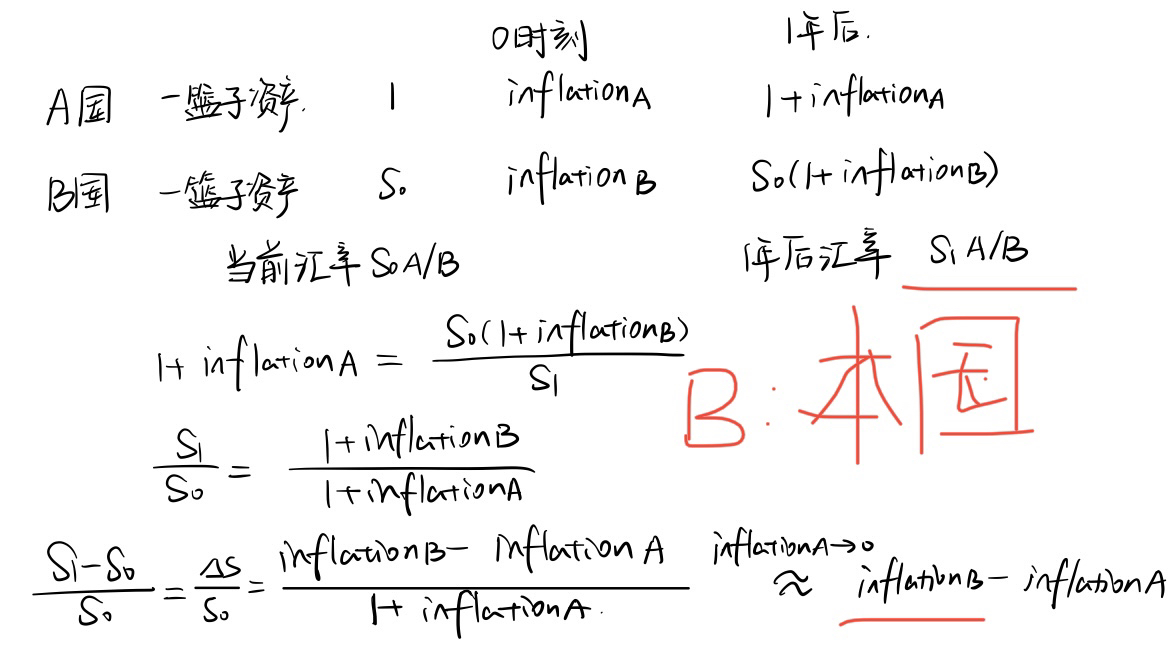 0时刻 1年后.
A国 一篮子资产. 1 inflationA 1+inflationA
B国 一篮子资产 S₀ inflationB S₀(1+inflationB)
当前汇率 S₀A/B 1年后汇率 S₁A/B
1+ inflationA = S₀(1+inflationB) / S₁
B:本国
S₁/S₀ = 1+inflationB / 1+inflationA
S₁-S₀/S₀ = ΔS/S₀ = inflationB- inflationA / 1+ inflationA. inflationA→0 ≈ inflationB- inflationA